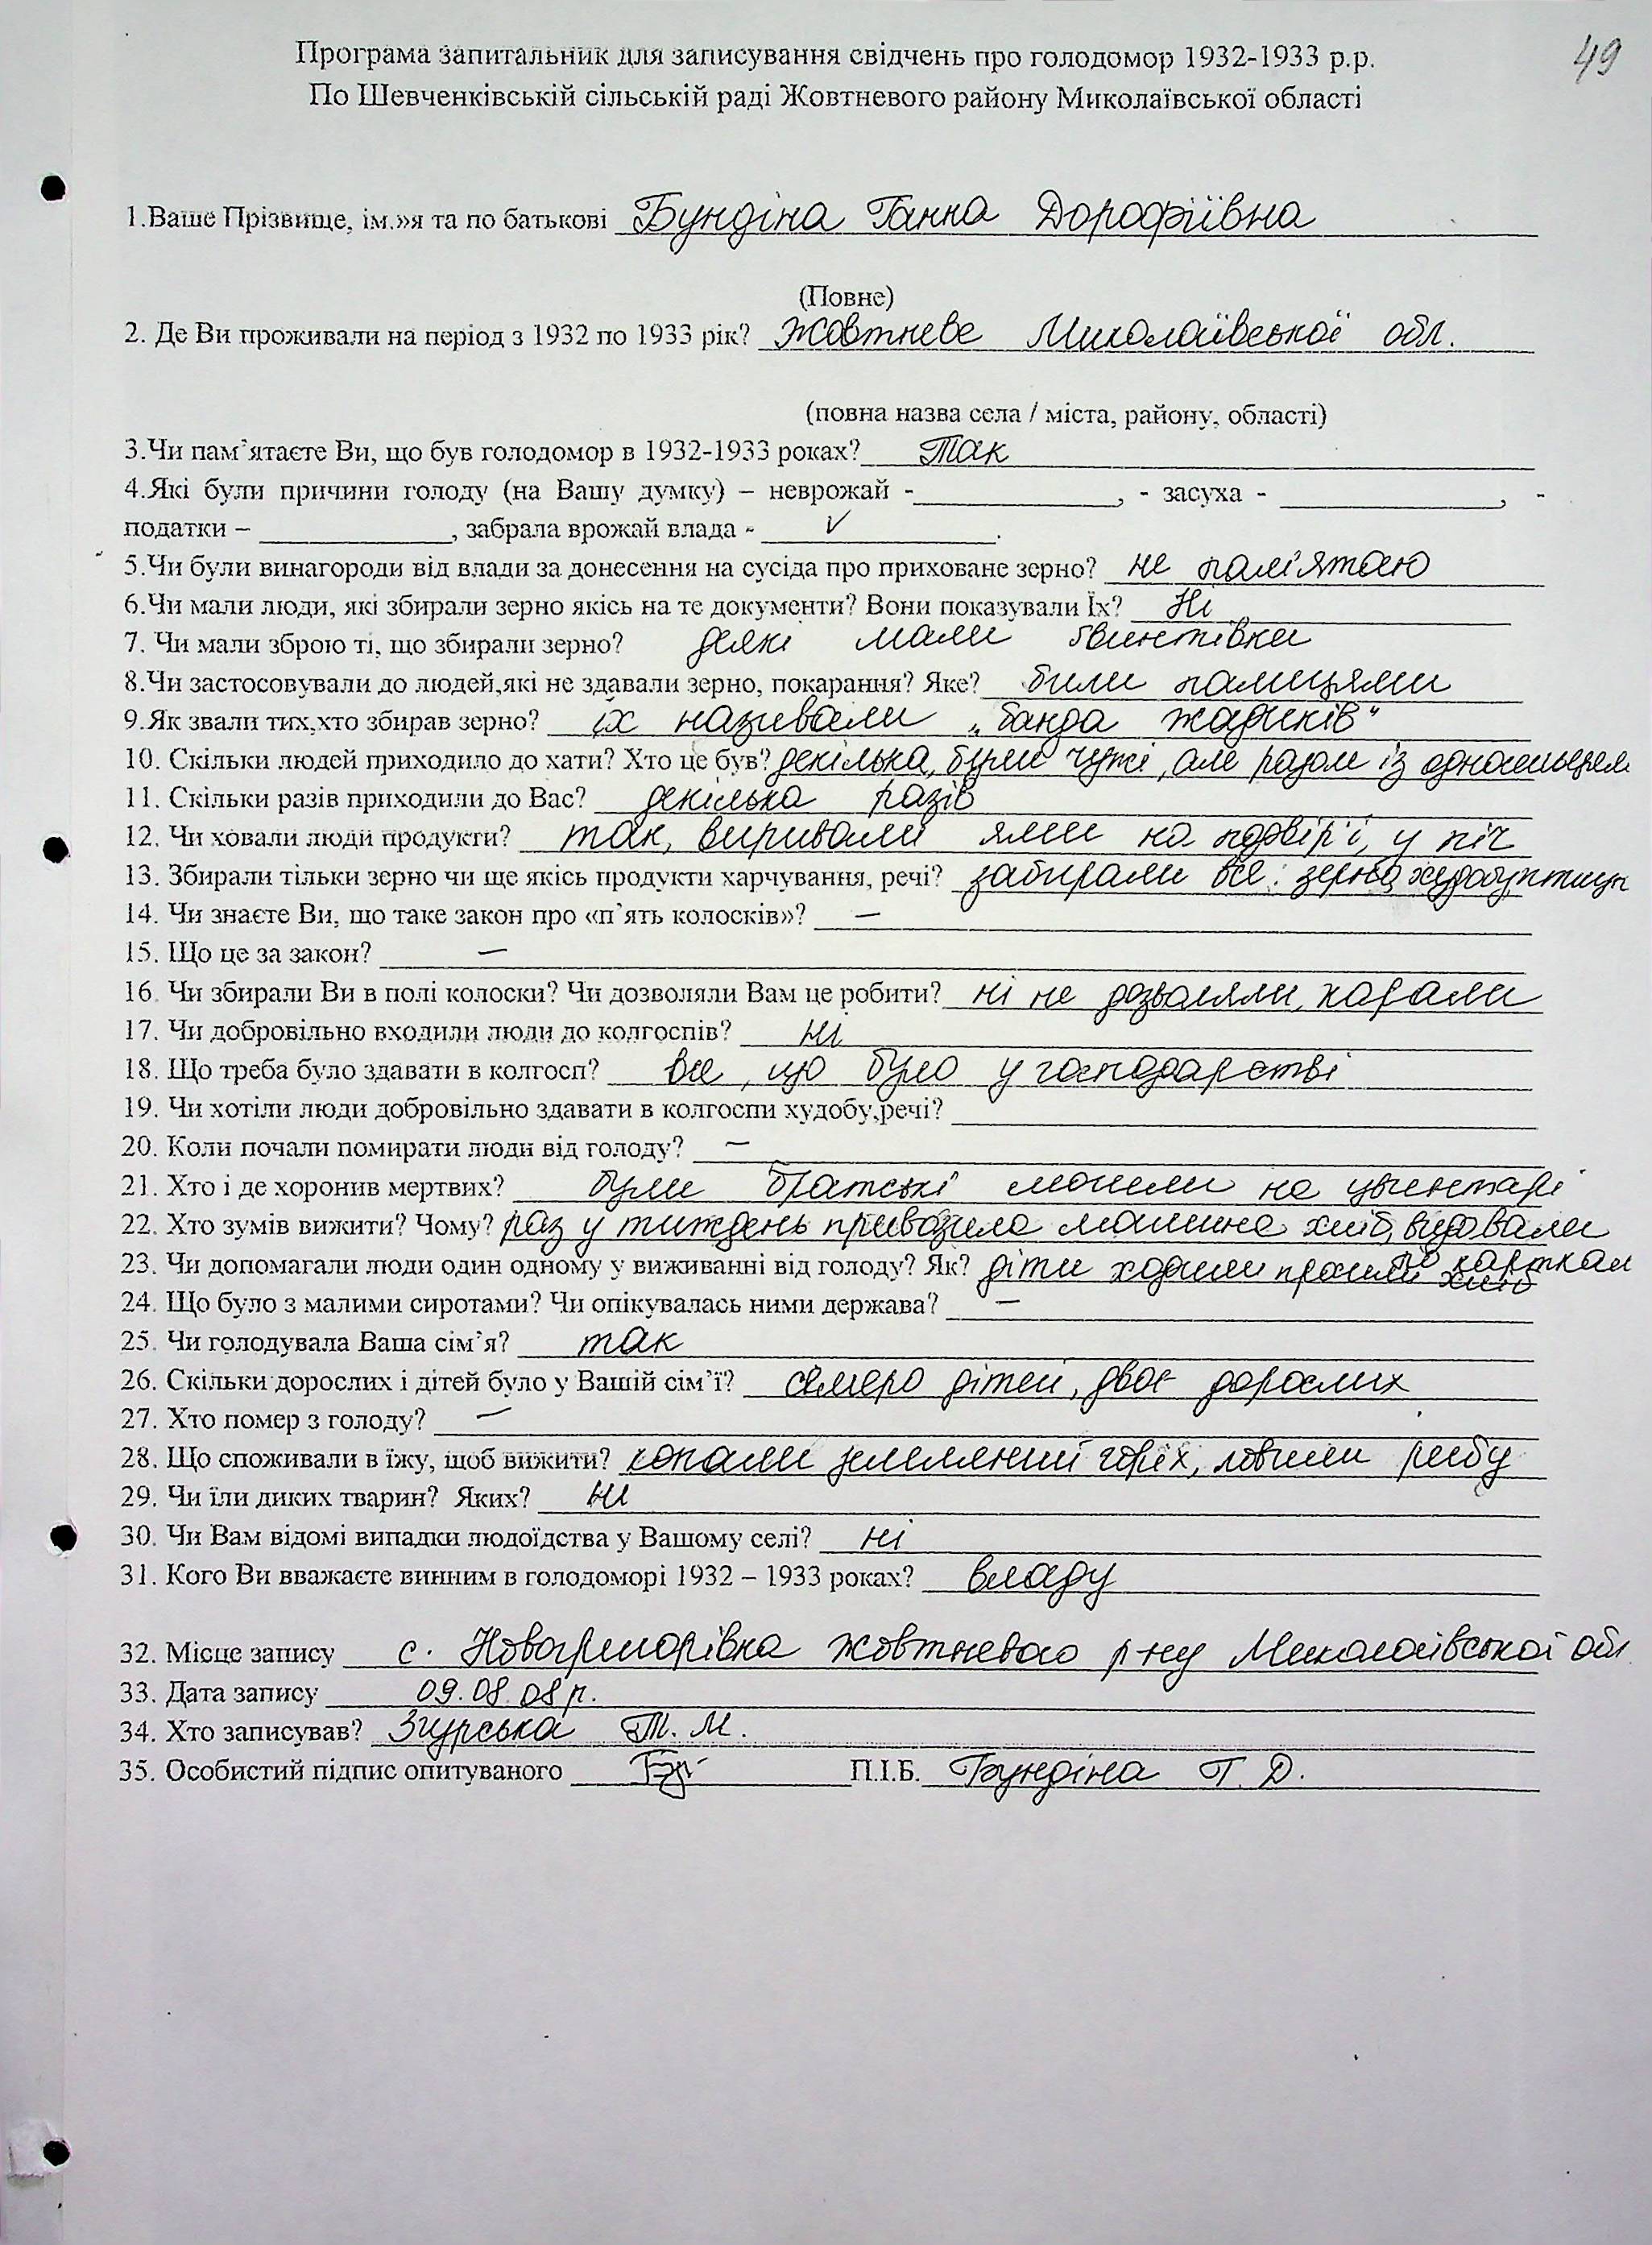 49
Програма запитальник для записування свідчень про голодомор 1932-1933 р.р.
По Шевченківській сільській раді Жовтневого району Миколаївської області
1.Ваше Прізвище, ім.»я та по батькові Бундіна Ганна Дорофіївна
(Повне)
2. Де Ви проживали на період з 1932 по 1933 рік? Жовтневе Миколаївської обл.
(повна назва села / міста, району, області)
3.Чи пам`ятаєте Ви, що був голодомор в 1932-1933 роках? Так
4.Які були причини голоду (на Вашу думку) – неврожай - ____, - засуха - ____, -
податки – ____, забрала врожай влада - ✓.
5.Чи були винагороди від влади за донесення на сусіда про приховане зерно? не пам'ятаю
6.Чи мали люди, які збирали зерно якісь на те документи? Вони показували їх? Ні
7. Чи мали зброю ті, що збирали зерно? деякі мали гвинтівки
8.Чи застосовували до людей,які не здавали зерно, покарання? Яке? били палицями
9.Як звали тих,хто збирав зерно? їх називали „банда жадиків"
10. Скільки людей приходило до хати? Хто це був? декілька, були чужі, але разом із односельцем
11. Скільки разів приходили до Вас? декілька разів
12. Чи ховали люди продукти? так, виривали ями на подвір'ї, у піч
13. Збирали тільки зерно чи ще якісь продукти харчування, речі? забирали все: зерно, худобу, птицю
14. Чи знаєте Ви, що таке закон про «п`ять колосків»? —
15. Що це за закон? —
16. Чи збирали Ви в полі колоски? Чи дозволяли Вам це робити? ні не дозволяли, карали
17. Чи добровільно входили люди до колгоспів? ні
18. Що треба було здавати в колгосп? все, що було у господарстві
19. Чи хотіли люди добровільно здавати в колгоспи худобу,речі?
20. Коли почали помирати люди від голоду? —
21. Хто і де хоронив мертвих? були братські могили на цвинтарі
22. Хто зумів вижити? Чому? раз у тиждень привозила машина хліб, видавали
по карткам
23. Чи допомагали люди один одному у виживанні від голоду? Як? діти ходили просили хліб
24. Що було з малими сиротами? Чи опікувалась ними держава? —
25. Чи голодувала Ваша сім`я? так
26. Скільки дорослих і дітей було у Вашій сім`ї? семеро дітей, двоє дорослих
27. Хто помер з голоду? —
28. Що споживали в їжу, щоб вижити? копали земляний горіх, ловили рибу
29. Чи їли диких тварин? Яких? ні
30. Чи Вам відомі випадки людоїдства у Вашому селі? ні
31. Кого Ви вважаєте винним в голодоморі 1932 – 1933 роках? владу
32. Місце запису с. Новогригорівка Жовтневого р-ну Миколаївської обл
33. Дата запису 09.08.08 р.
34. Хто записував? Згурська Т. М.
35. Особистий підпис опитуваного ____ П.І.Б. Бундіна Г. Д.